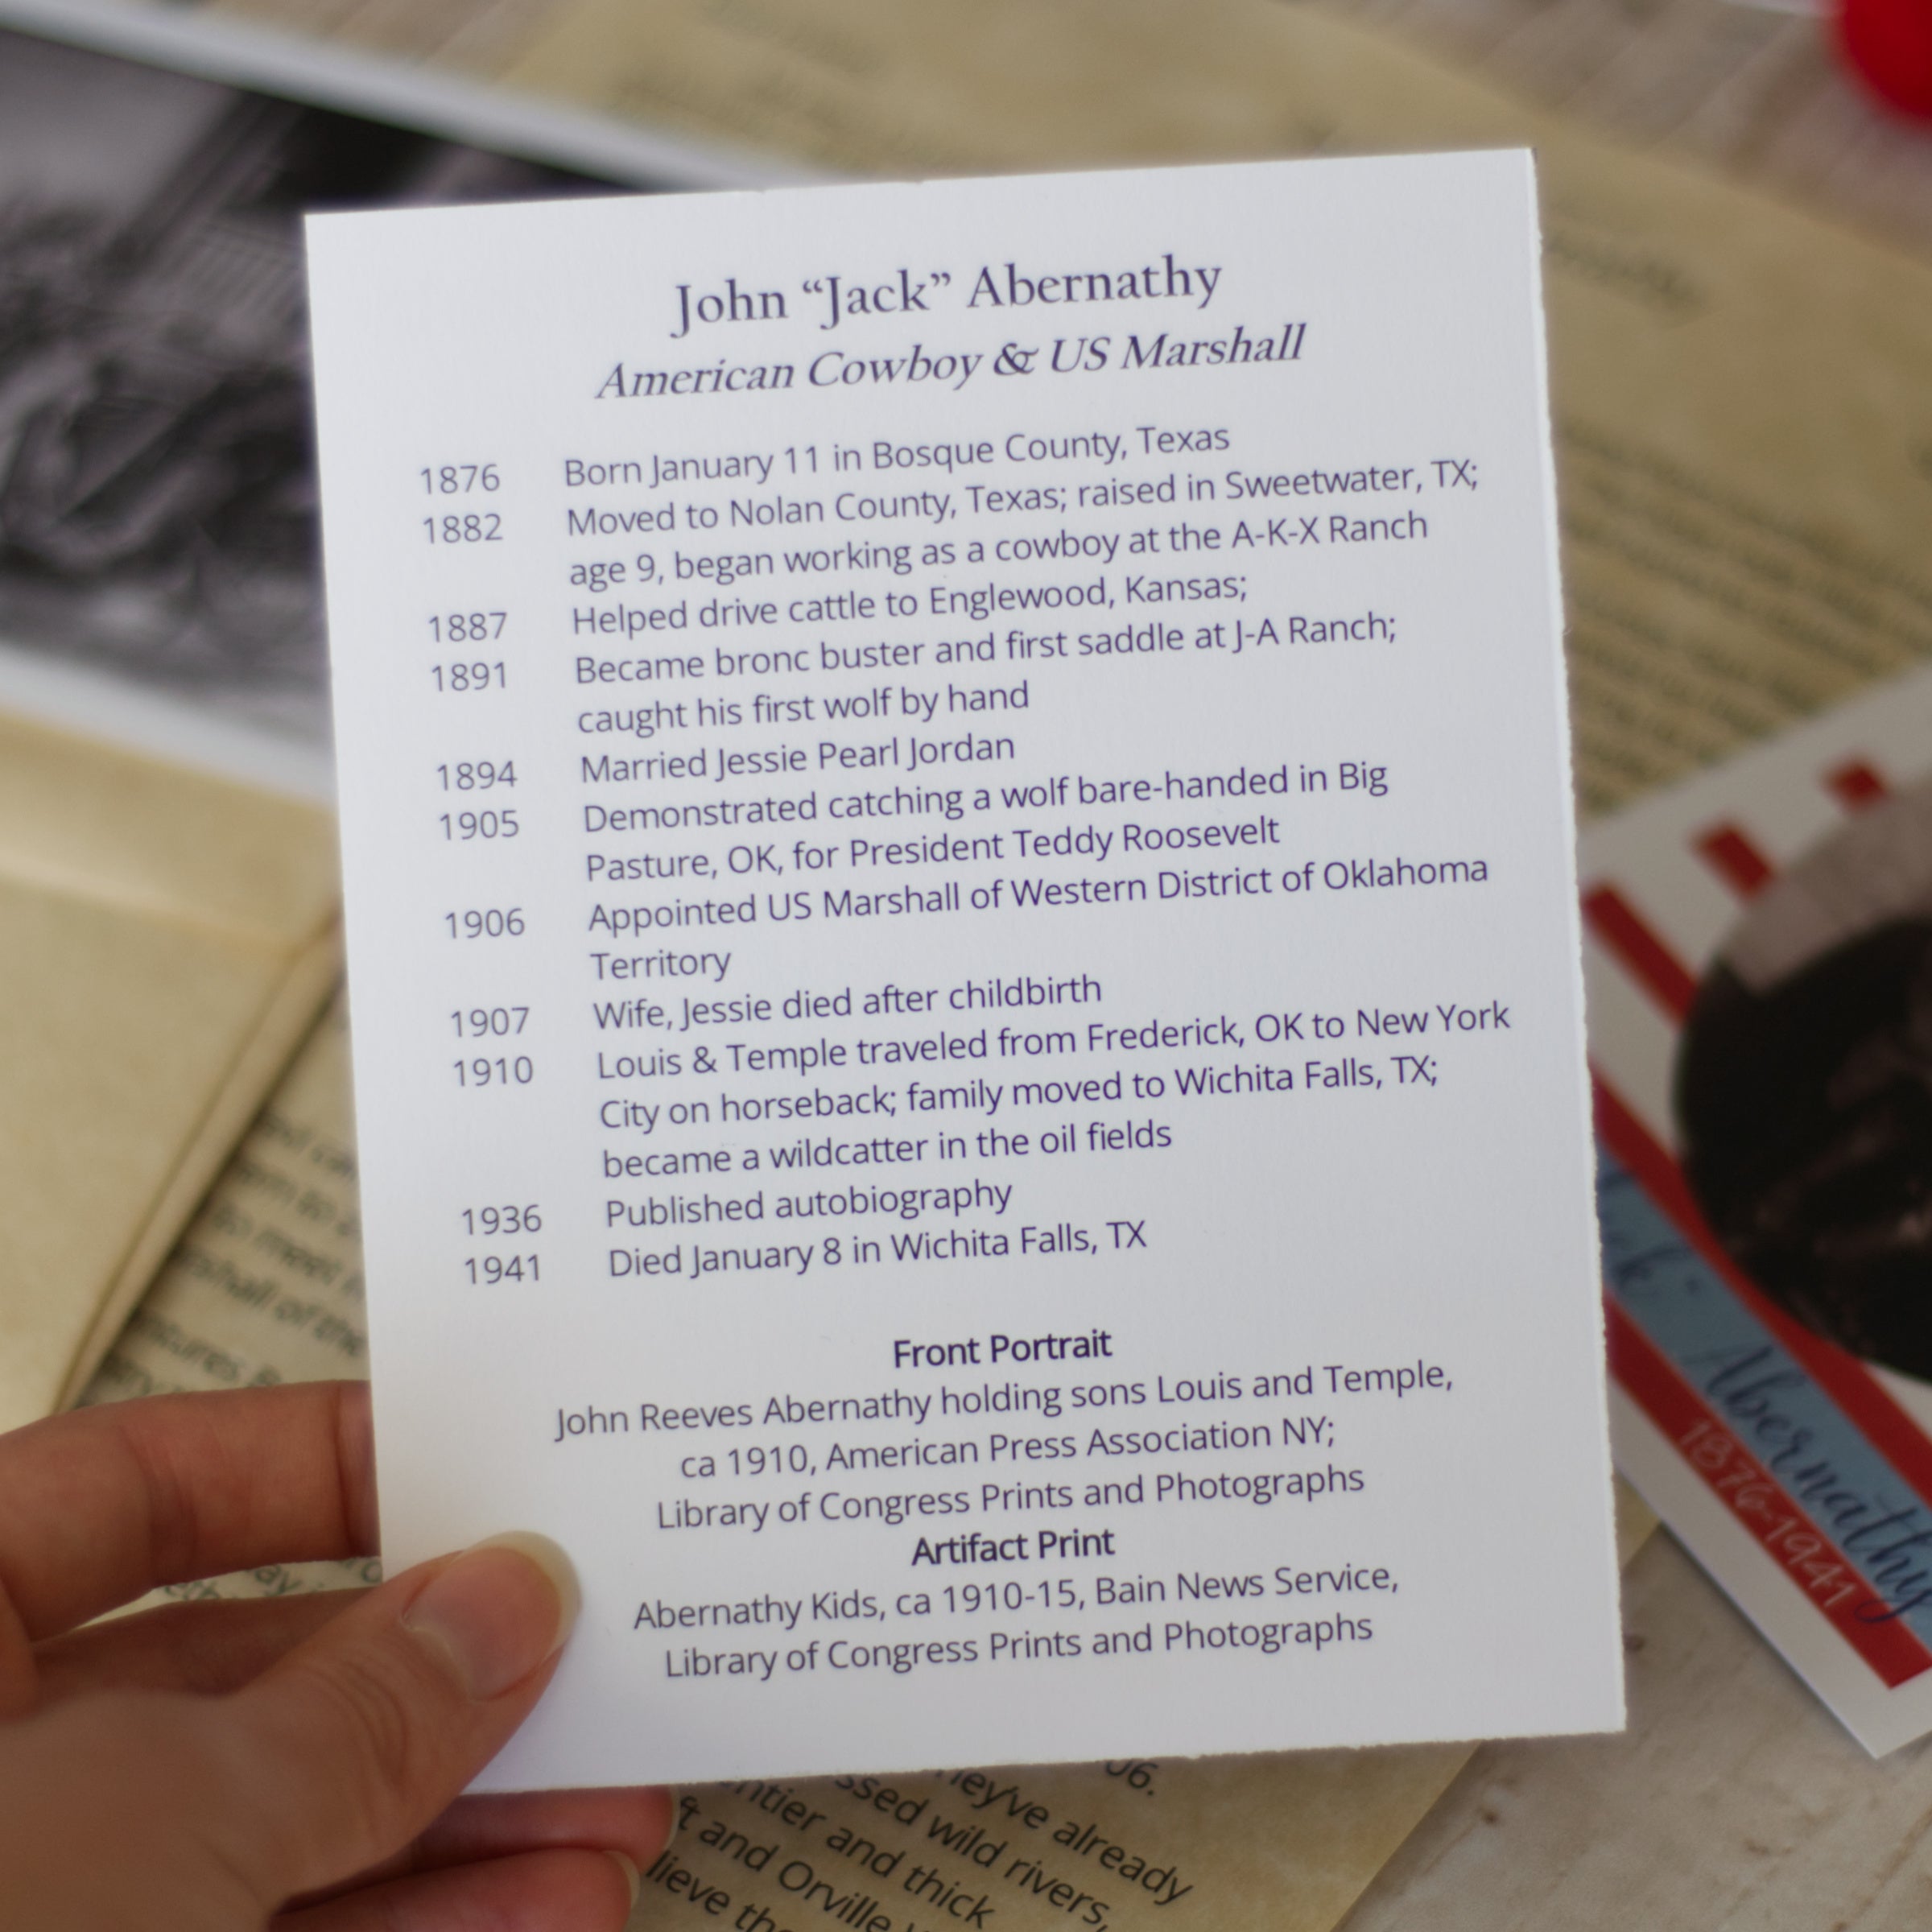 John “Jack” Abernathy
American Cowboy & US Marshall
1876 Born January 11 in Bosque County, Texas
1882 Moved to Nolan County, Texas; raised in Sweetwater, TX;
age 9, began working as a cowboy at the A-K-X Ranch
1887 Helped drive cattle to Englewood, Kansas;
1891 Became bronc buster and first saddle at J-A Ranch;
caught his first wolf by hand
1894 Married Jessie Pearl Jordan
1905 Demonstrated catching a wolf bare-handed in Big
Pasture, OK, for President Teddy Roosevelt
1906 Appointed US Marshall of Western District of Oklahoma
Territory
1907 Wife, Jessie died after childbirth
1910 Louis & Temple traveled from Frederick, OK to New York
City on horseback; family moved to Wichita Falls, TX;
became a wildcatter in the oil fields
1936 Published autobiography
1941 Died January 8 in Wichita Falls, TX
Front Portrait
John Reeves Abernathy holding sons Louis and Temple,
ca 1910, American Press Association NY;
Library of Congress Prints and Photographs
Artifact Print
Abernathy Kids, ca 1910-15, Bain News Service,
Library of Congress Prints and Photographs
Abernathy
1876-1941
to meet
of the
06.
they've already
wild rivers,
and thick
and Orville